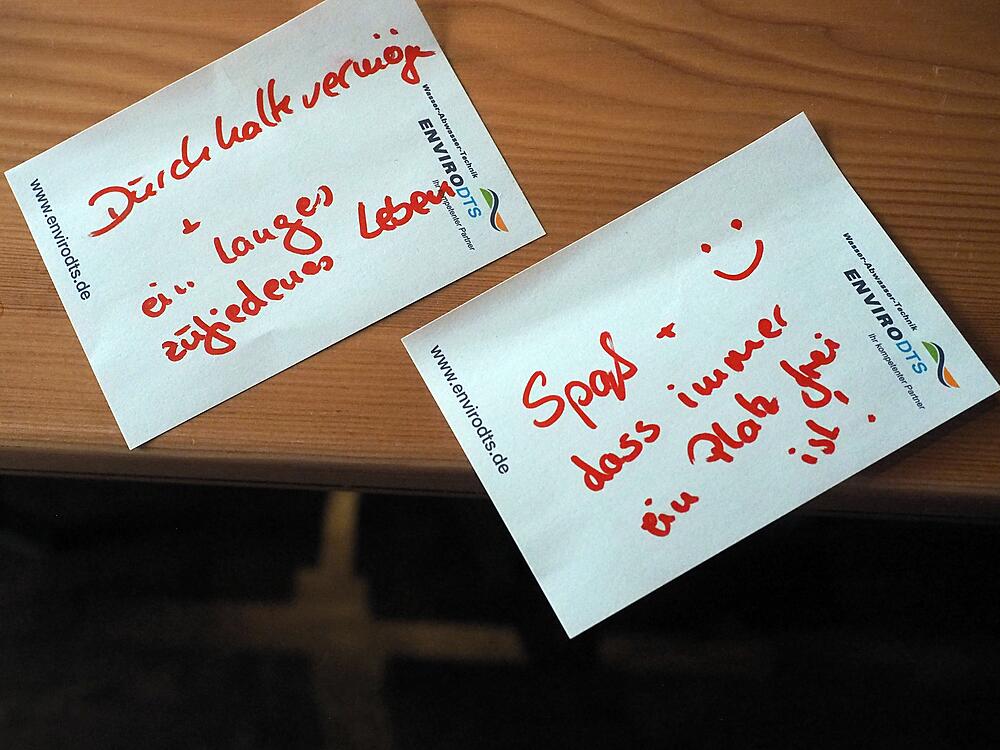 Durchhaltevermög
+
ein langes
zufriedenes Leben
www.envirodts.de
Wasser-Abwasser-Technik
ENVIRODTS
Ihr kompetenter Partner
Spaß +
dass immer
ein Platz frei
ist.
www.envirodts.de
Wasser-Abwasser-Technik
ENVIRODTS
Ihr kompetenter Partner